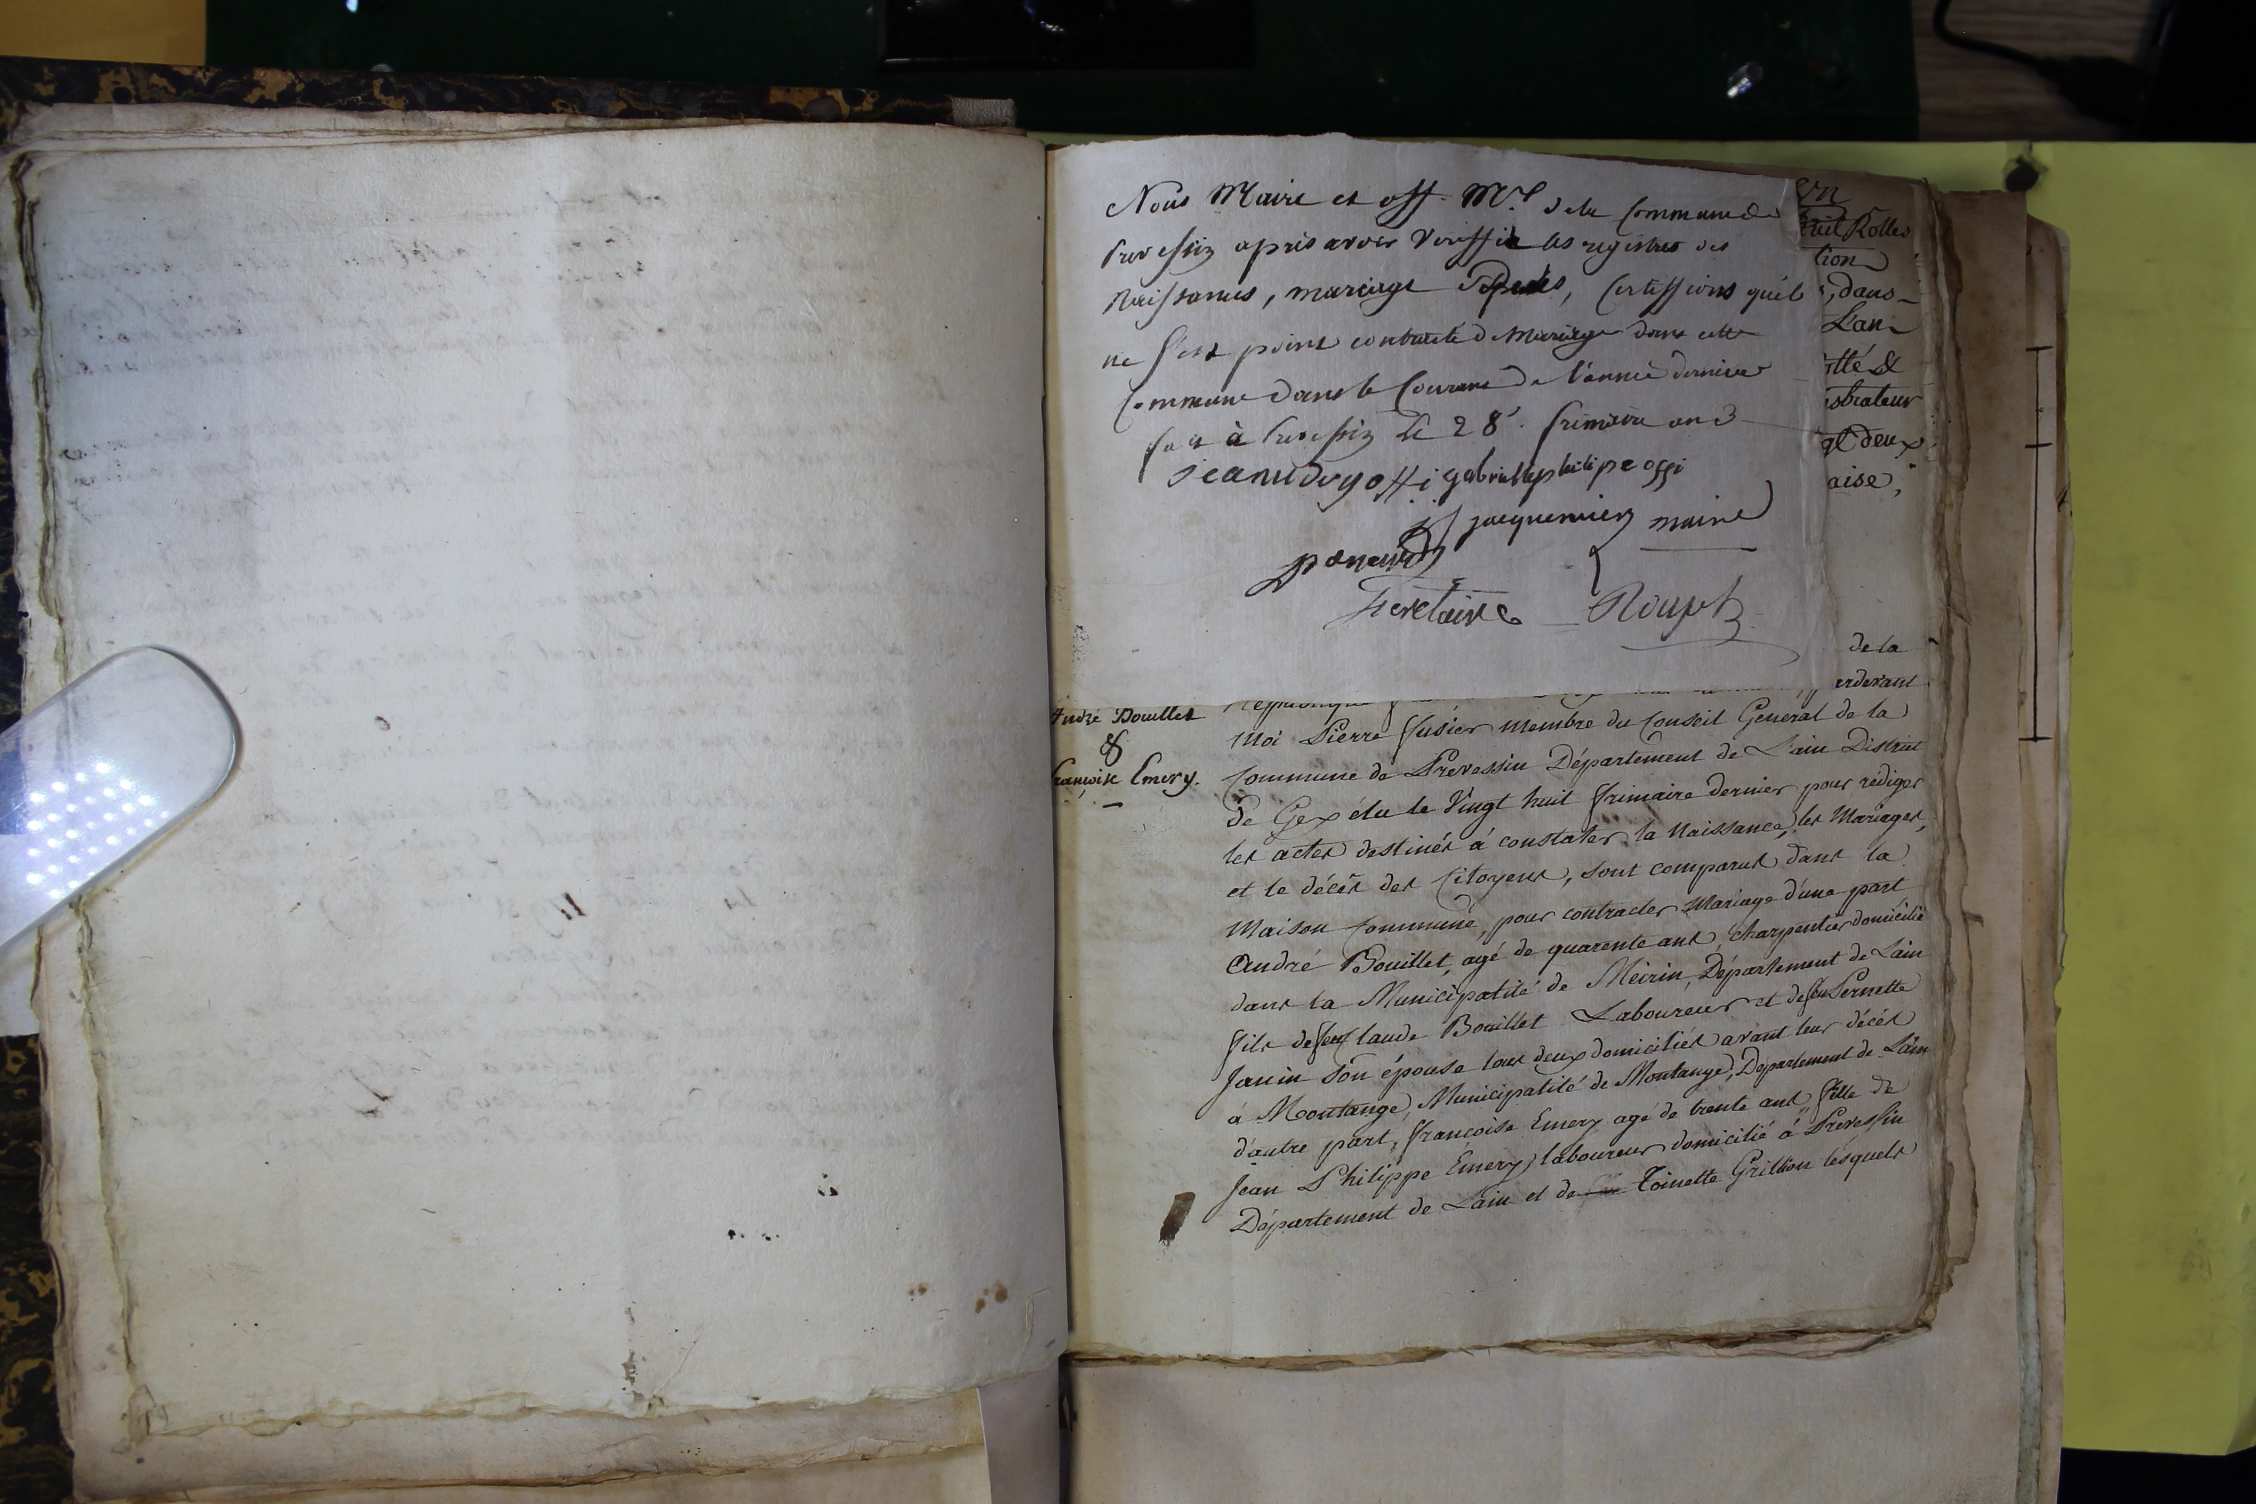 Nous Maire et off. M.l de la Commune de
Prevessin après avoir veriffié les registres des
Naissances, mariage, certiffions qu'il
ne s'est point contracté de Mariage dans cette
Commune dans le Courant de l'année derniere
fait à Prevessin le 28e. frimaire an 3
gabriel philipe offi
jacquemier maire
Secretaire
Rouph
tion
, dans
L'an
gt deux
aise,
de la
pardevant
André Bouillet
&
françoise Emery.
Moi Pierre fusier membre du Conseil General de la
Commune de Prevessin Département de L'ain District
de Gex élu le Vingt huit frimaire dernier pour rédiger
les actes destinés à constater la Naissance, les Mariages,
et le décès des Citoyens, sont comparus dans la
Maison Commune, pour contracter Mariage d'une part
André Bouillet, agé de quarente ans, charpentier domicilié
dans la Municipalité de Meirin, Département de Lain
fils de feu Claude Bouillet Laboureur et de feu Pernette
Janin son épouse tous deux domiciliés avant leur décès
à Montange, Municipalité de Montange, Département de Lain
d'autre part, françoise Emery agé de trente ans fille de
Jean Philippe Emery, laboureur domicilié à Prevessin
Département de Lain et de Toinette Grillion lesquels